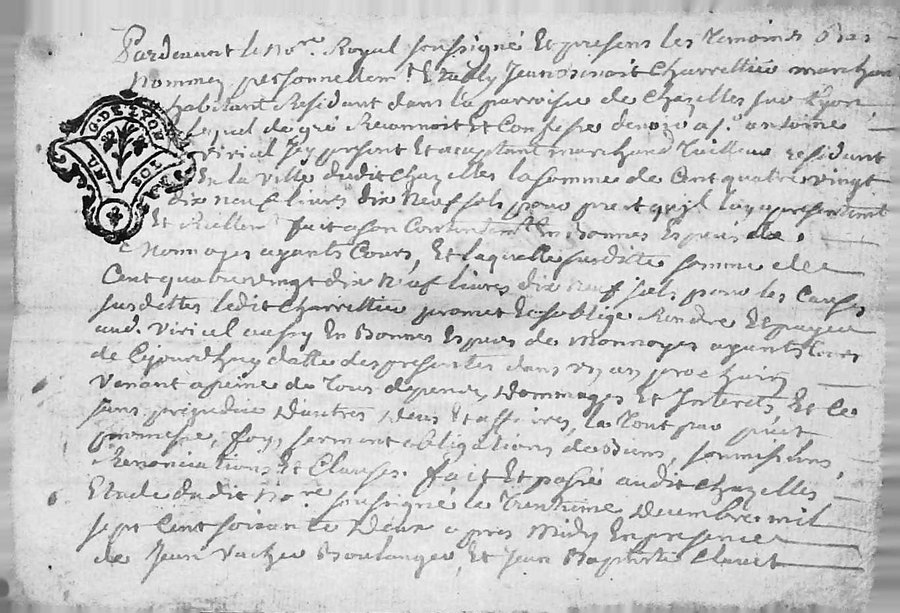 Pardevant le No.re Royal soussigné Et presens les temoins bas
Nommez personnellem.t Estably Jean Benoit Charrettier marchan
habitant Residant dans la parroisse de Chazelles sur Lyon
Lequel de gré Reconnoit Et Confesse devoir a s.r antoine
viricel Icy present Et acceptant marchand Tailleur residant
En la Ville dudit Chazelles la somme de Cent quatre vingt
dix neuf livres dix Neuf sols pour prest qu'il luy a presentemt
Et Reellemt fait a son Contentemt En Bonnes Especes de
Monnoyes ayants Cours, Et laquelle susditte somme de
Cent quatrevingt dix Neuf livres dix neuf sols pour les Causes
susdittes ledit Charrettier promet Et s'oblige Rendre Et payer
aud. Viricel aussy En Bonnes Espèces de Monnoyes ayants Cours
de Cejourd'huy datte des presentes dans un an prochain
Venant a peine de tous depends, Dommages Et Interets, Et Ce
sans prejudice D'autres Deus Et affaires, le Tout par
promesse, foy, serment obligations de Biens, soumissions,
Renonciations Et Clauses. fait Et passé audit Chazelles
Etude dudit No.re soussigné le Trentieme Decembre mil
sept Cent soixante Deux apres Midy En presence
de Jean Vacher Boulanger, Et Jean Baptiste Claret
G. DE LYON
SOL